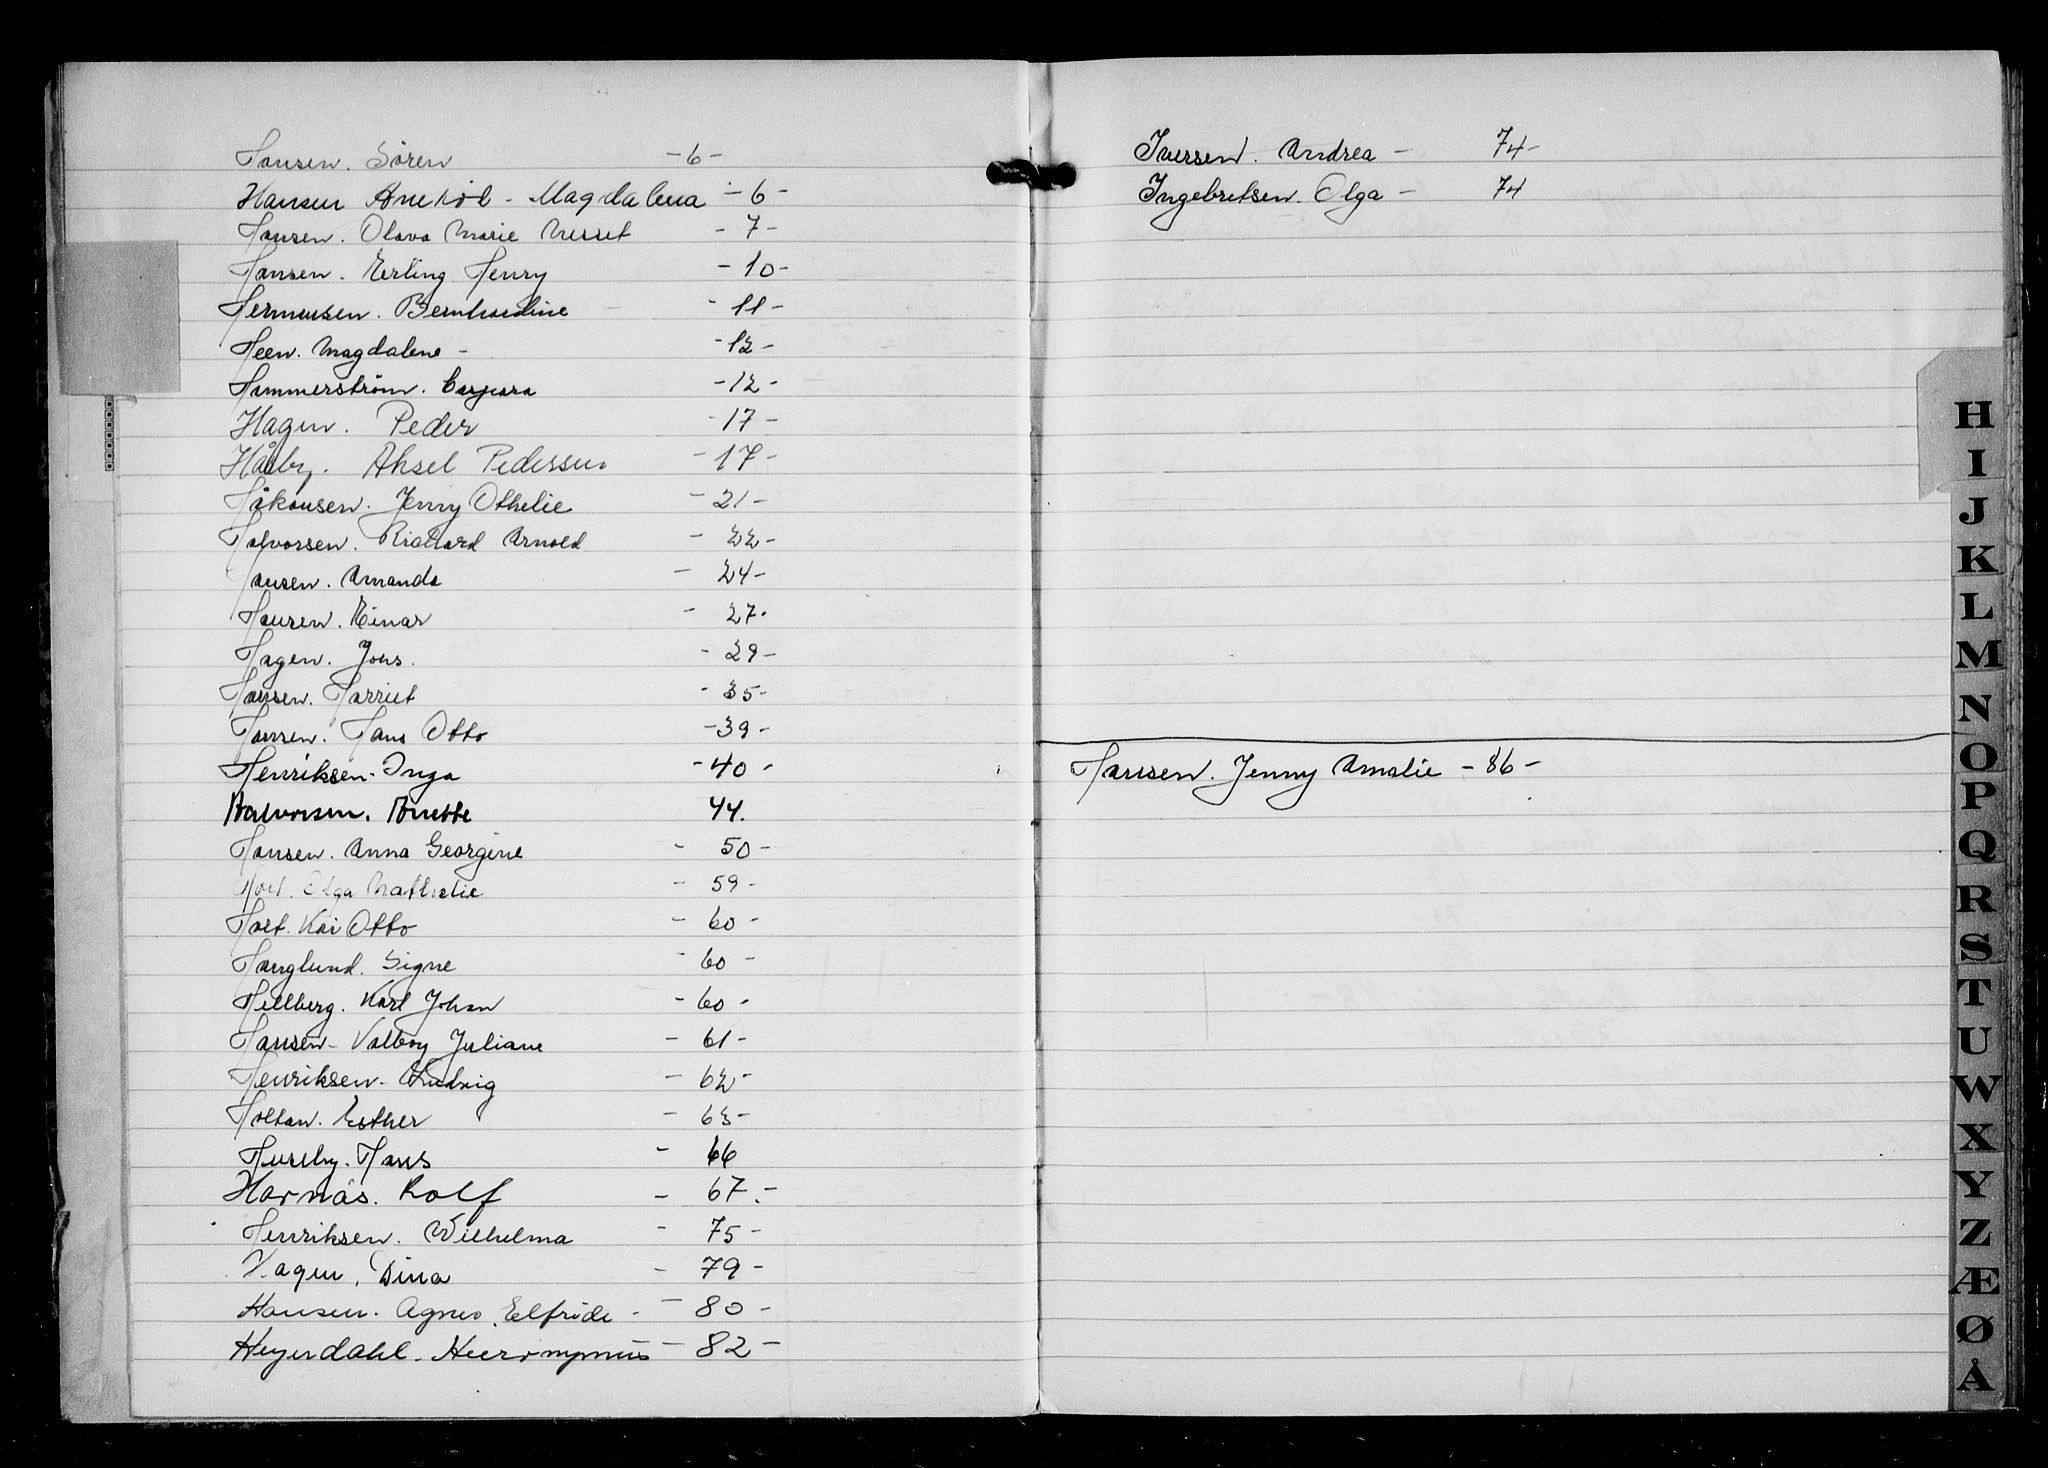 Hansen. Sören -6-
Hansen - Magdalena - 6 -
Hansen. Olava Marie - 7 -
Hansen. Erling Henry - 10 -
Hermansen. Bernhardine - 11 -
Heen. Magdalene - - 12 -
Hammerström. - 12 -
Hagen. Peder - 17 -
Håby. Aksel Pedersen - 17 -
Håkonsen. Jenny Othelie - 21 -
Halvorsen. Richard Arnold - 22 -
Hansen. Amanda - 24 -
Hansen. Einar - 27.
Hagen. Johs. - 29 -
Hansen. Harriet - 35 -
Hansen. Hans Otto - 39 -
Henriksen. Inga - 40 -
Halvorsen. Anette 44.
Hansen. Anna Georgine - 50 -
Holt. Olga Mathilie - 59 -
Holt. Kai Otto - 60 -
Hanglund. Signe - 60 -
Hellberg. Karl Johan - 60 -
Hansen - Valboy Juliane - 61 -
Henriksen - Ludvig - 62 -
Holtan. Esther - 63 -
Huseby. Hans - 66
Harnäs. Rolf - 67 -
Henriksen. Wilhelma - 75 -
Hagen. Dina - 79 -
Hansen. Agnes Elfride - - 80 -
Heyerdahl - Hieronymus - 82 -
Iversen. Andrea - 74 -
Ingebretsen. Olga - 74
Hansen. Jenny Amalie - 86 -
H
I
J
K
L
M
N
O
P
Q
R
S
T
U
W
X
Y
Z
Æ
Ø
Å